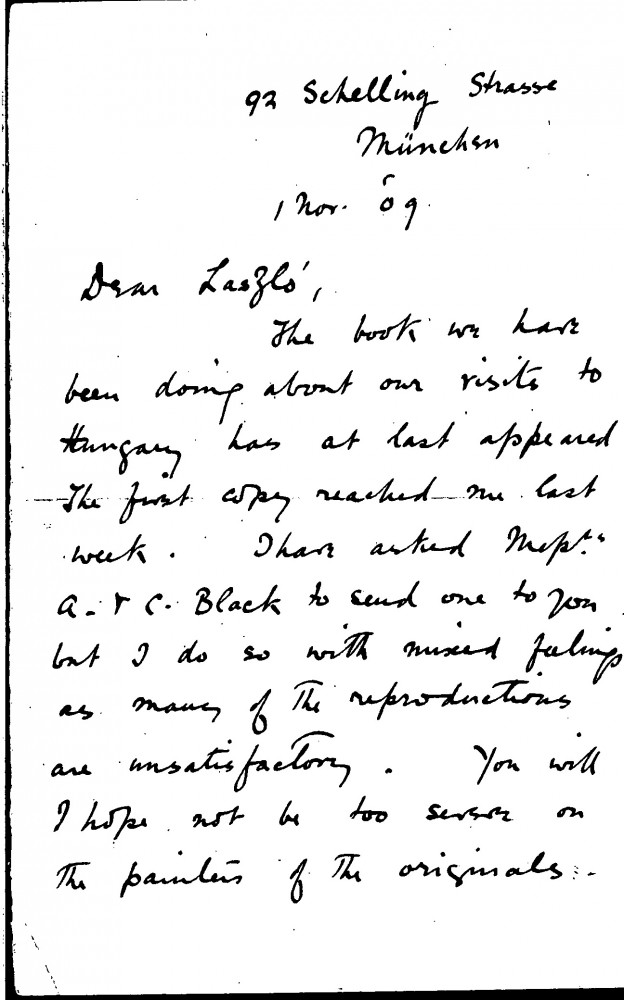 92 Schelling Strasse
München
1 Nor. 09
Dear Laszló,
The book we have
been doing about our visits to
Hungary has at last appeared
The first copy reached me last
week. I have asked Messrs
A. & C. Black to send one to you
but I do so with mixed feelings
as many of the reproductions
are unsatisfactory. You will
I hope not be too severe on
the painters of the originals.